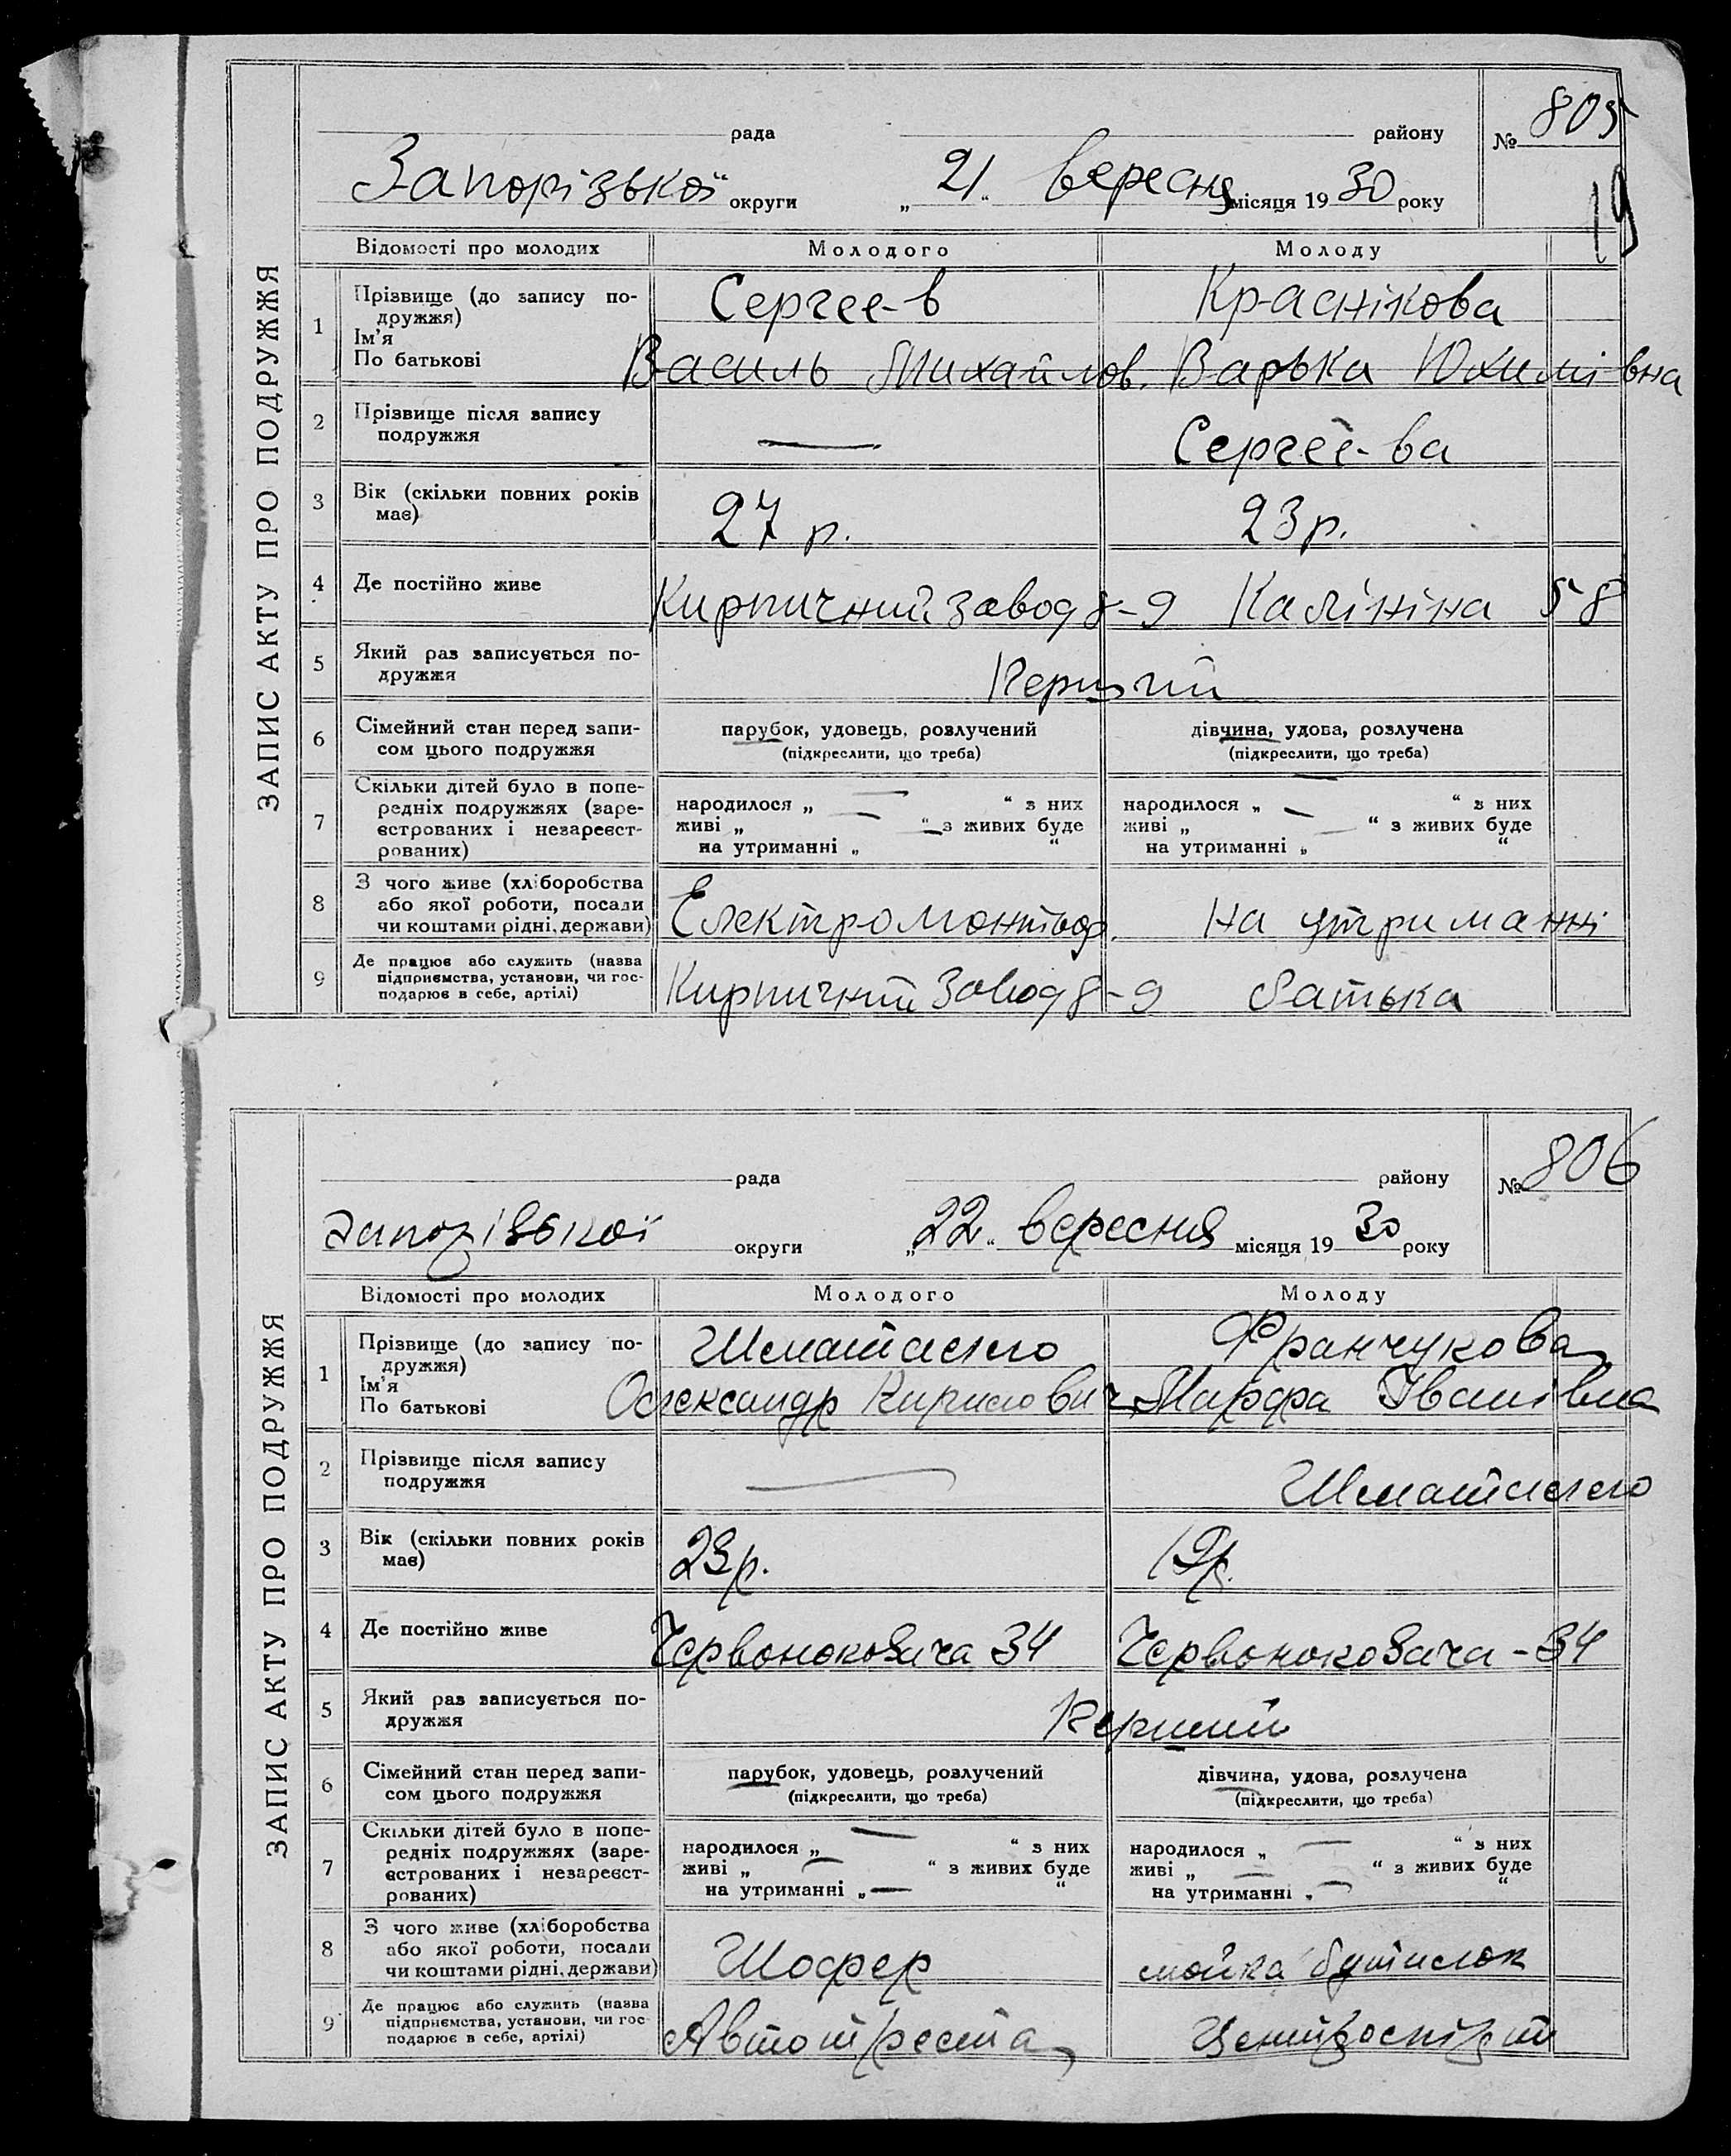 ЗАПИС АКТУ ПРО ПОДРУЖЖЯ
рада району № 805
Запорізької округи „21“ вересня місяця 1930 року
19
Відомості про молодих Молодого Молоду
1 Прізвище (до запису по- Сергеев Краснікова
дружжя)
Ім'я
По батькові Василь Михайлов. Варька Юхимівна
2 Прізвище після запису
подружжя — Сергеева
3 Вік (скільки повних років
має) 27 р. 23 р.
4 Де постійно живе Кирпичний завод 8-9 Калініна 58
5 Який раз записується по-
дружжя Перший
6 Сімейний стан перед запи- парубок, удовець, розлучений дівчина, удова, розлучена
сом цього подружжя (підкреслити, що треба) (підкреслити, що треба)
7 Скільки дітей було в попе-
редніх подружжях (заре- народилося „ — “ з них народилося „ — “ з них
єстрованих і незареєст- живі „ — “ з живих буде живі „ — “ з живих буде
рованих) на утриманні „ “ на утриманні „ “
8 З чого живе (хліборобства
або якої роботи, посади
чи коштами рідні, держави) Електромонтьор. на утриманні
9 Де працює або служить (назва
підприємства, установи, чи гос-
подарює в себе, артілі) Кирпичний Завод 8-9 батька
ЗАПИС АКТУ ПРО ПОДРУЖЖЯ
рада району № 806
Запорізької округи „22“ вересня місяця 1930 року
Відомості про молодих Молодого Молоду
1 Прізвище (до запису по- Шматченко Франчукова
дружжя)
Ім'я
По батькові Олександр Кирилович Марфа Іванівна
2 Прізвище після запису
подружжя —
3 Вік (скільки повних років
має) 23р. 19р.
4 Де постійно живе Червонокозача 34 Червонокозача - 34
5 Який раз записується по-
дружжя Перший
6 Сімейний стан перед запи- парубок, удовець, розлучений дівчина, удова, розлучена
сом цього подружжя (підкреслити, що треба) (підкреслити, що треба)
7 Скільки дітей було в попе-
редніх подружжях (заре- народилося „ — “ з них народилося „ — “ з них
єстрованих і незареєст- живі „ — “ з живих буде живі „ — “ з живих буде
рованих) на утриманні „ — “ на утриманні „ — “
8 З чого живе (хліборобства
або якої роботи, посади
чи коштами рідні, держави) Шофер мойка бутилок
9 Де працює або служить (назва
підприємства, установи, чи гос-
подарює в себе, артілі) Автотреста Центроспірт